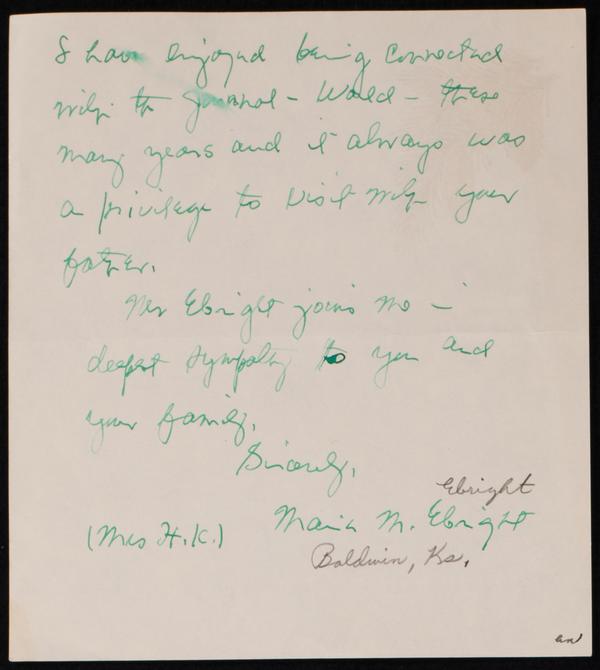 I have enjoyed being connected
with the Journal-World - these
many years and it always was
a privilege to visit with your
father.
Mr Ebright joins me in
deepest sympathy to you and
your family.
Sincerely,
Ebright
(Mrs H.K.) Maria M. Ebright
Baldwin, Ks.